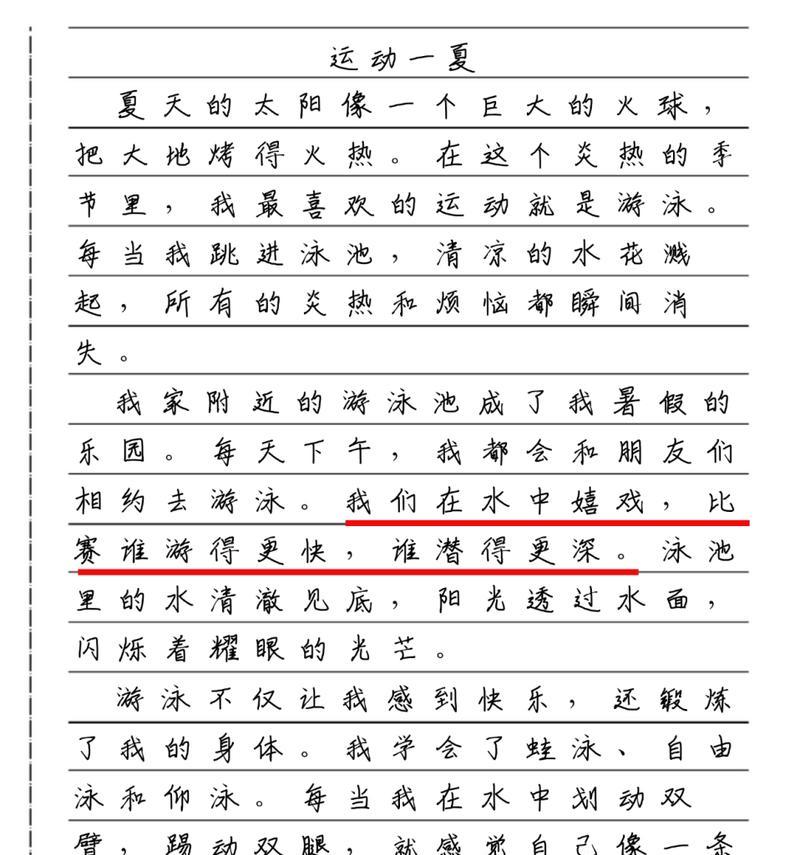 运动一夏
夏天的太阳像一个巨大的火球，
把大地烤得火热。在这个炎热的季
节里，我最喜欢的运动就是游泳。
每当我跳进泳池，清凉的水花溅
起，所有的炎热和烦恼都瞬间消
失。
我家附近的游泳池成了我暑假的
乐园。每天下午，我都会和朋友们
相约去游泳。我们在水中嬉戏，比
赛谁游得更快，谁潜得更深。泳池
里的水清澈见底，阳光透过水面，
闪烁着耀眼的光芒。
游泳不仅让我感到快乐，还锻炼
了我的身体。我学会了蛙泳、自由
泳和仰泳。每当我在水中划动双
臂，踢动双腿，就感觉自己像一条